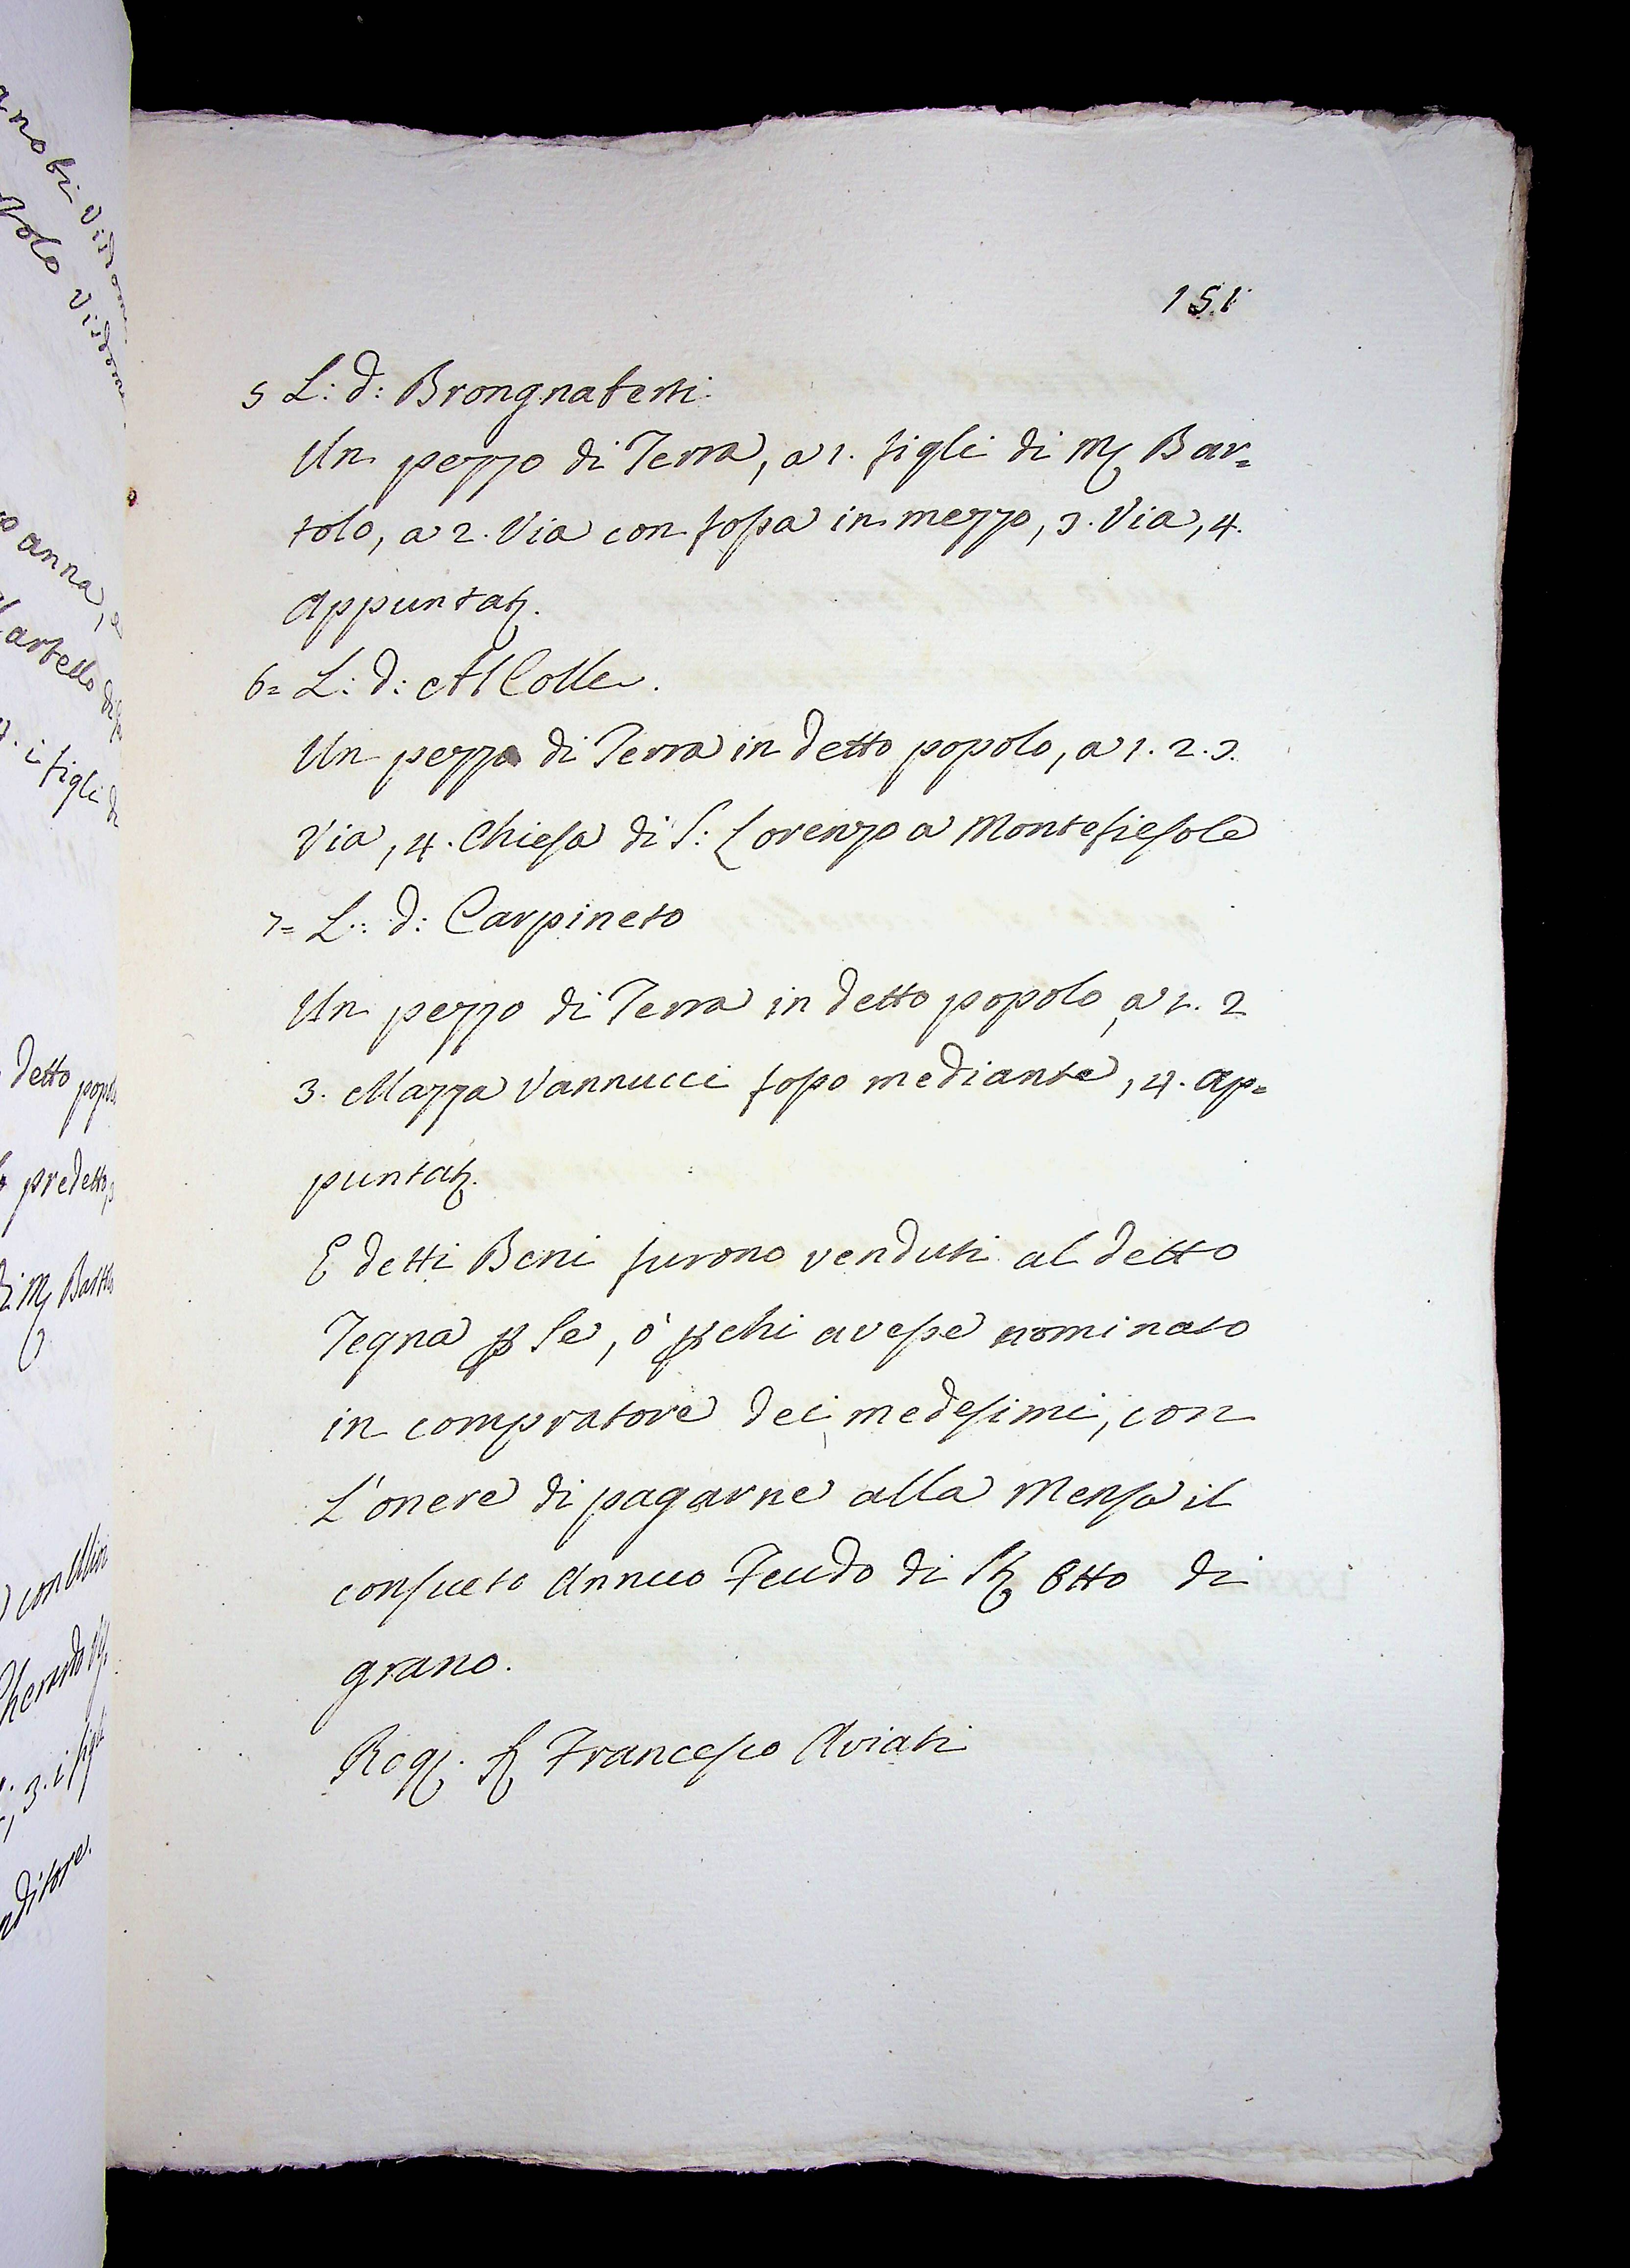 151
5 L: d: Brongnaterti.
Un pezzo di Terra, a 1. figli di M. Bar=
tolo, a 2. Via con fossa in mezzo, 3. Via, 4.
appuntat.
6= L: d: Al Colle.
Un pezzo di Terra in detto popolo, a 1. 2. 3.
Via, 4. Chiesa di S: Lorenzo a Montefiesole
7= L: d: Carpineto
Un pezzo di Terra in detto popolo, a 1. 2
3. Mazza Vannucci fosso mediante, 4. ap=
puntat.
E detti Beni furono venduti al detto
Tegna p se, ò p chi avesse nominato
in compratore dei medesimi, con
L'onere di pagarne alla Mensa il
consueto Annuo Feudo di St Otto di
grano.
Rog. S. Francesco Aviati